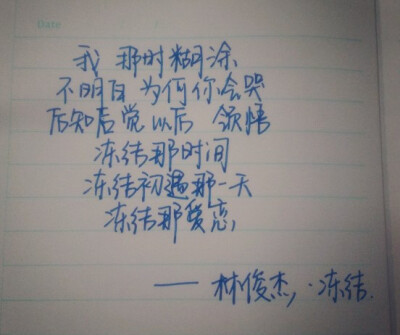 Date
我 那时糊涂
不明白 为何你会哭
后知后觉以后 领悟
冻结那时间
冻结初遇那一天
冻结那爱恋,
—— 林俊杰, · 冻结.